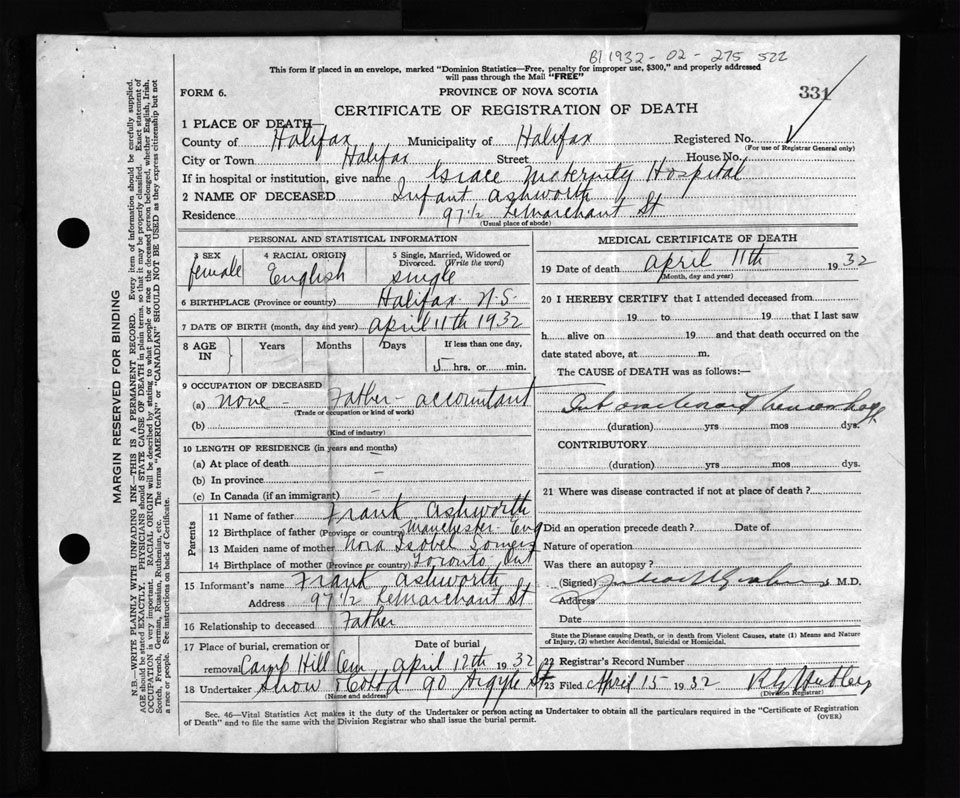 B1 1932-02-275 522
This form if placed in an envelope, marked "Dominion Statistics—Free, penalty for improper use, $300," and properly addressed
will pass through the Mail "FREE"
FORM 6.
PROVINCE OF NOVA SCOTIA
331
CERTIFICATE OF REGISTRATION OF DEATH
1 PLACE OF DEATH—
County of Halifax Municipality of Halifax Registered No.
(For use of Registrar General only)
City or Town Halifax Street House No.
If in hospital or institution, give name Grace Maternity Hospital
2 NAME OF DECEASED Infant Ashworth
Residence 97½ LeMarchant St
(Usual place of abode)
PERSONAL AND STATISTICAL INFORMATION
3 SEX female
4 RACIAL ORIGIN English
5 Single, Married, Widowed or Divorced. (Write the word) single
6 BIRTHPLACE (Province or country) Halifax N.S.
7 DATE OF BIRTH (month, day and year) April 11th 1932
8 AGE IN Years Months Days If less than one day,
5 hrs. or min.
9 OCCUPATION OF DECEASED
(a) None - Father - accountant
(Trade or occupation or kind of work)
(b)
(Kind of industry)
10 LENGTH OF RESIDENCE (in years and months)
(a) At place of death —
(b) In province —
(c) In Canada (if an immigrant) —
Parents
11 Name of father Frank Ashworth
12 Birthplace of father (Province or country) Manchester Eng
13 Maiden name of mother Nora Isobel Somers
14 Birthplace of mother (Province or country) Toronto Ont
15 Informant's name Frank Ashworth
Address 97½ LeMarchant St
16 Relationship to deceased Father
17 Place of burial, cremation or removal Camp Hill Cem
Date of burial April 12th 1932
18 Undertaker Snow & Co Ltd 90 Argyle St
(Name and address)
MEDICAL CERTIFICATE OF DEATH
19 Date of death April 11th 1932
(Month, day and year)
20 I HEREBY CERTIFY that I attended deceased from
19 to 19 that I last saw
h alive on 19 and that death occurred on the
date stated above, at m.
The CAUSE of DEATH was as follows:—
hemorrhage
(duration) yrs mos dys.
CONTRIBUTORY
(duration) yrs mos dys.
21 Where was disease contracted if not at place of death?
Did an operation precede death? Date of
Nature of operation
Was there an autopsy?
(Signed) M.D.
Address
Date
State the Disease causing Death, or in death from Violent Causes, state (1) Means and Nature
of Injury, (2) whether Accidental, Suicidal or Homicidal.
22 Registrar's Record Number
23 Filed April 15 1932
(Division Registrar)
Sec. 46—Vital Statistics Act makes it the duty of the Undertaker or person acting as Undertaker to obtain all the particulars required in the "Certificate of Registration
of Death" and to file the same with the Division Registrar who shall issue the burial permit.
(OVER)
MARGIN RESERVED FOR BINDING
N.B.—WRITE PLAINLY WITH UNFADING INK—THIS IS A PERMANENT RECORD. Every item of information should be carefully supplied.
AGE should be stated EXACTLY. PHYSICIANS should STATE CAUSE OF DEATH in plain terms, so that it may be properly classified. Exact statement of
OCCUPATION is very important. RACIAL ORIGIN will be described by stating to what people or race the deceased person belonged, whether English, Irish,
Scotch, French, German, Russian, Ruthenian, etc. The terms "AMERICAN" or "CANADIAN" SHOULD NOT BE USED as they express citizenship but not
a race or people. See instructions on back of Certificate.